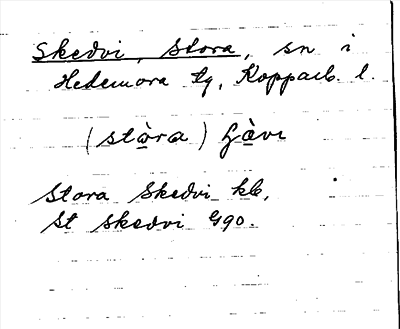 Skedvi, Stora, sn i
Hedemora tg, Kopparb. l.
(stòra)
Stora Skedvi kb,
St Skedvi Ggo.